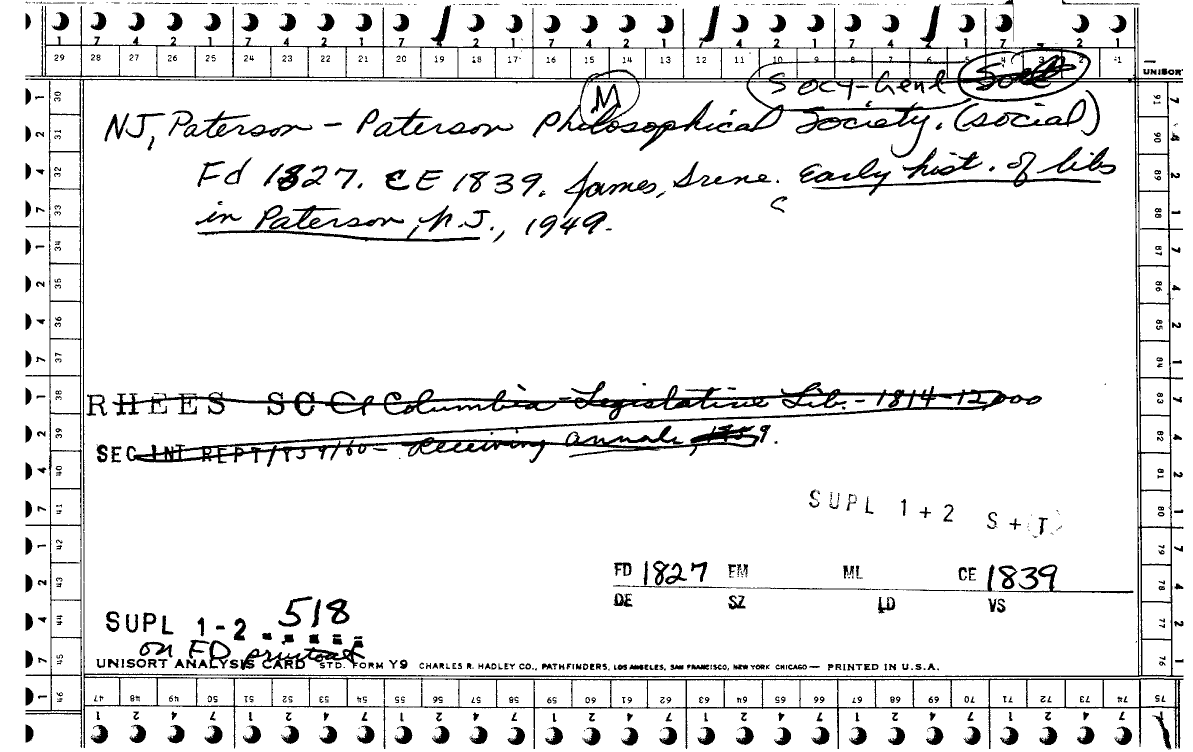 1 7 4 2 1 7 4 2 1 7 4 2 1 7 4 2 1 7 4 2 1 7 4 2 1
29 28 27 26 25 24 23 22 21 20 19 18 17 16 15 14 13 12 11 10 9 8 7 6 5 4 3 2 1
UNISORT
M Socy-Genl
NJ, Paterson - Paterson Philosophical Society. (social)
Fd 1827. CE 1839. James, Irene. Early hist. of libs
in Paterson, N.J., 1949.
RHEES SC Columbia - Legislative Lib. - 1814 - 12,000
SEC INT REPT/1859/60 - Receiving annals, 1859.
SUPL 1 + 2 S + (T)
FD 1827 EM ML CE 1839
DE SZ LD VS
SUPL 1-2 518
on FD printout
UNISORT ANALYSIS CARD STD. FORM Y9 CHARLES R. HADLEY CO., PATHFINDERS, LOS ANGELES, SAN FRANCISCO, NEW YORK CHICAGO — PRINTED IN U.S.A.
30 31 32 33 34 35 36 37 38 39 40 41 42 43 44 45 46
91 90 89 88 87 86 85 84 83 82 81 80 79 78 77 76 75
47 48 49 50 51 52 53 54 55 56 57 58 59 60 61 62 63 64 65 66 67 68 69 70 71 72 73 74